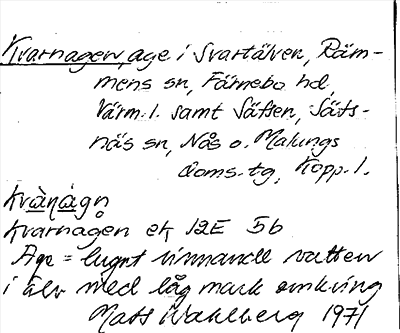 Kvarnagen, age i Svartälven, Räm-
mens sn, Färnebo hd,
Värm. l. samt Säfsen, Säfs-
näs sn, Nås o. Malungs
doms.-tg, Kopp. l.
kvàṇàgn
Kvarnagen ek 12E 5b
Age = lugnt rinnande vatten
i älv med låg mark omkring
Mats Wahlberg 1971